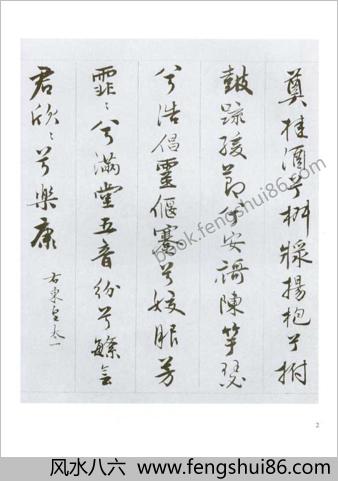 奠桂酒兮椒漿揚枹兮拊
鼓疏緩節兮安謌陳竽瑟
兮浩倡靈偃蹇兮姣服芳
霏〻兮滿堂五音紛兮繁會
君欣〻兮樂康
右東皇太一
book.fengshui86.com
2
风水八六 www.fengshui86.com